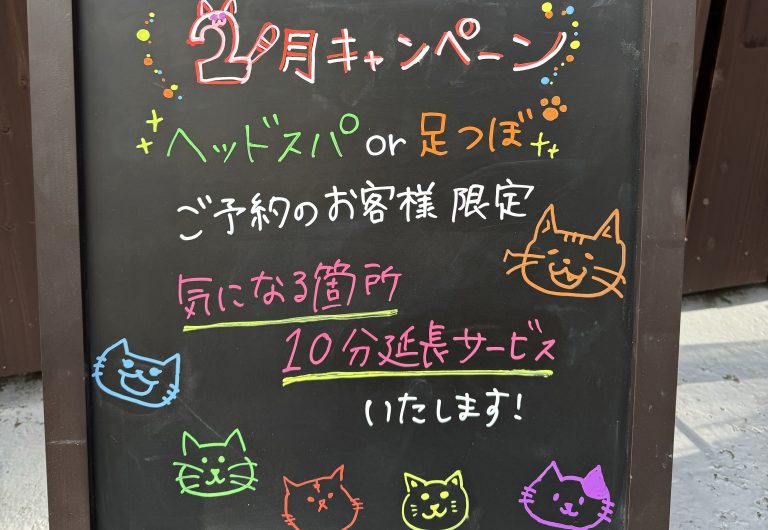 2月キャンペーン
ヘッドスパ or 足つぼ
ご予約のお客様 限定
気になる箇所
10分延長サービス
いたします!